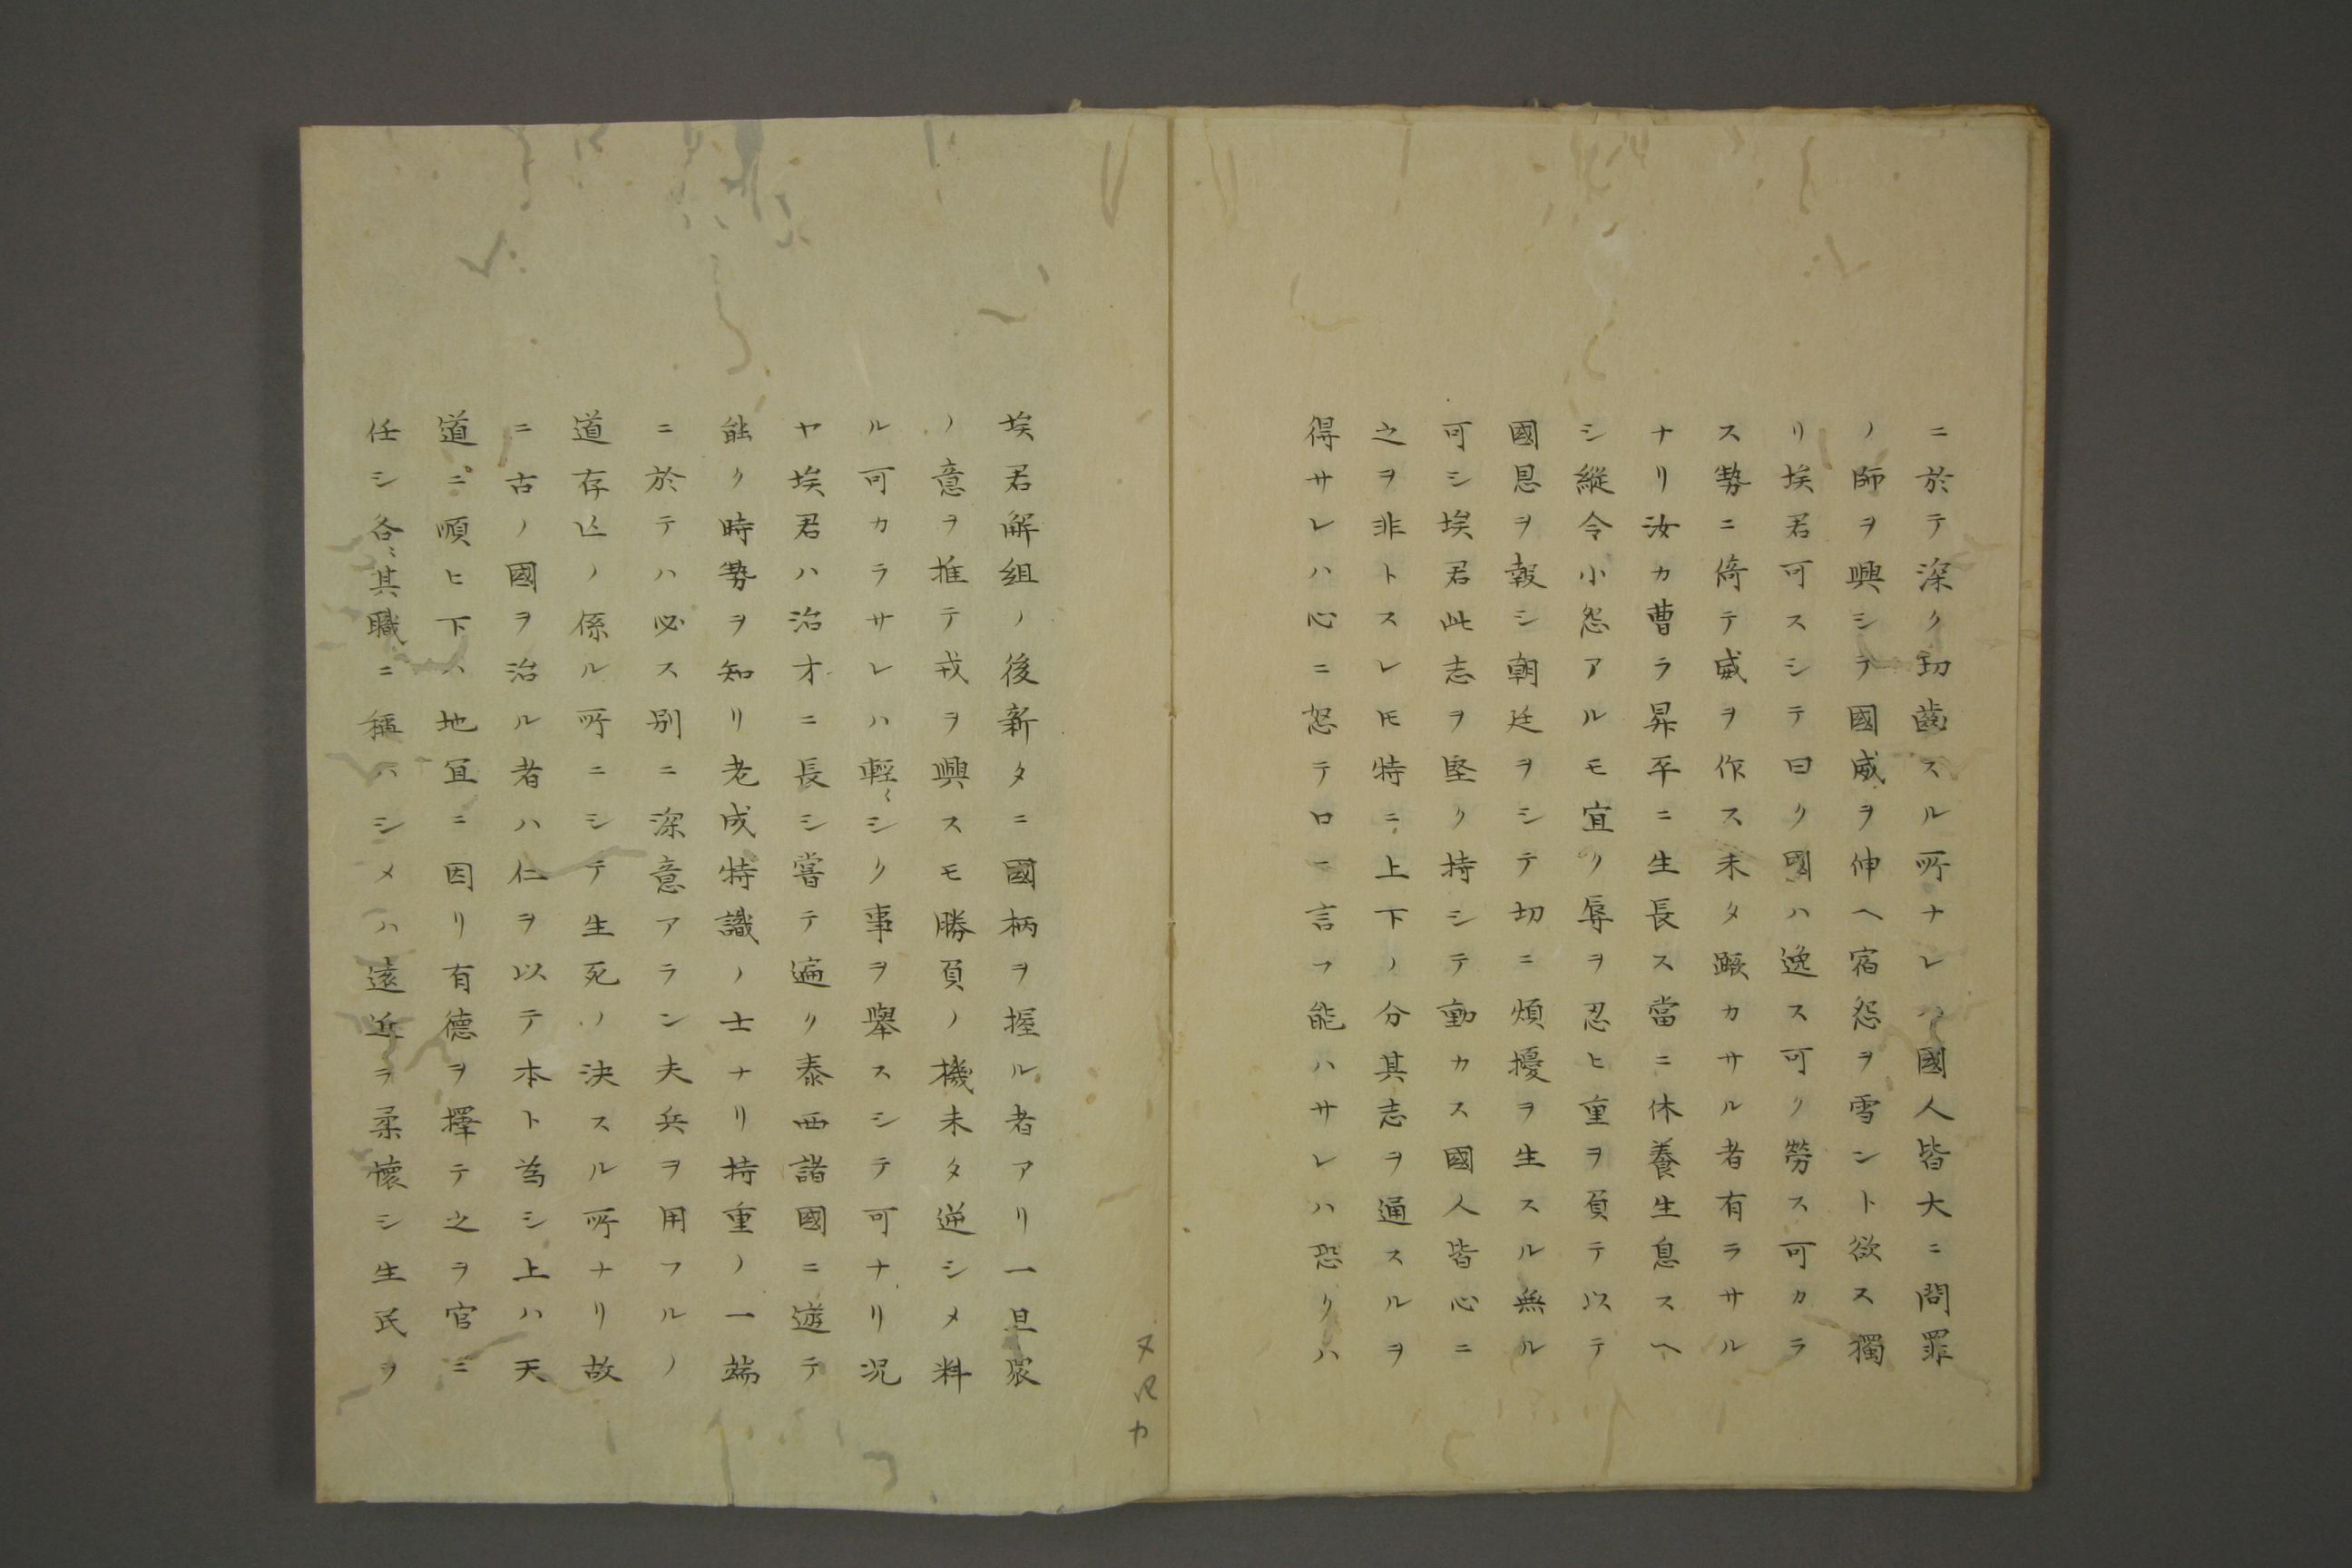 ニ於テ深ク切齒スル所ナレハ國人皆大ニ問罪
ノ師ヲ興シテ國威ヲ伸ヘ宿怨ヲ雪ント欲ス獨
リ埃君可スシテ曰ク國ハ逸ス可ク勞ス可カラ
ス勢ニ倚テ威ヲ作ス未タ蹶カサル者有ラサル
ナリ汝カ曹ラ昇平ニ生長ス當ニ休養生息スヘ
シ縦令小怨アルモ宜ク辱ヲ忍ヒ重ヲ負テ以テ
國恩ヲ報シ朝廷ヲシテ切ニ煩擾ヲ生スル無ル
可シ埃君此志ヲ堅ク持シテ動カス國人皆心ニ
之ヲ非トスレ𪜈特ニ上下ノ分其志ヲ通スルヲ
得サレハ心ニ怒テ口ニ言フ能ハサレハ恐クハ
埃君解組ノ後新タニ國柄ヲ握ル者アリ一旦衆
ノ意ヲ推テ戎ヲ興スモ勝負ノ機未タ逆シメ料
ル可カラサレハ輕〻シク事ヲ舉スシテ可ナリ况
ヤ埃君ハ治才ニ長シ嘗テ遍ク泰西諸國ニ遊テ
能ク時勢ヲ知リ老成特識ノ士ナリ持重ノ一端
ニ於テハ必ス別ニ深意アラン夫兵ヲ用フルノ
道存亡ノ係ル所ニシテ生死ノ決スル所ナリ故
ニ古ノ國ヲ治ル者ハ仁ヲ以テ本ト為シ上ハ天
道ニ順ヒ下ハ地宜ニ因リ有德ヲ擇テ之ヲ官ニ
任シ各〻其職ニ稱ハシメハ遠近ヲ柔懷シ生民ヲ